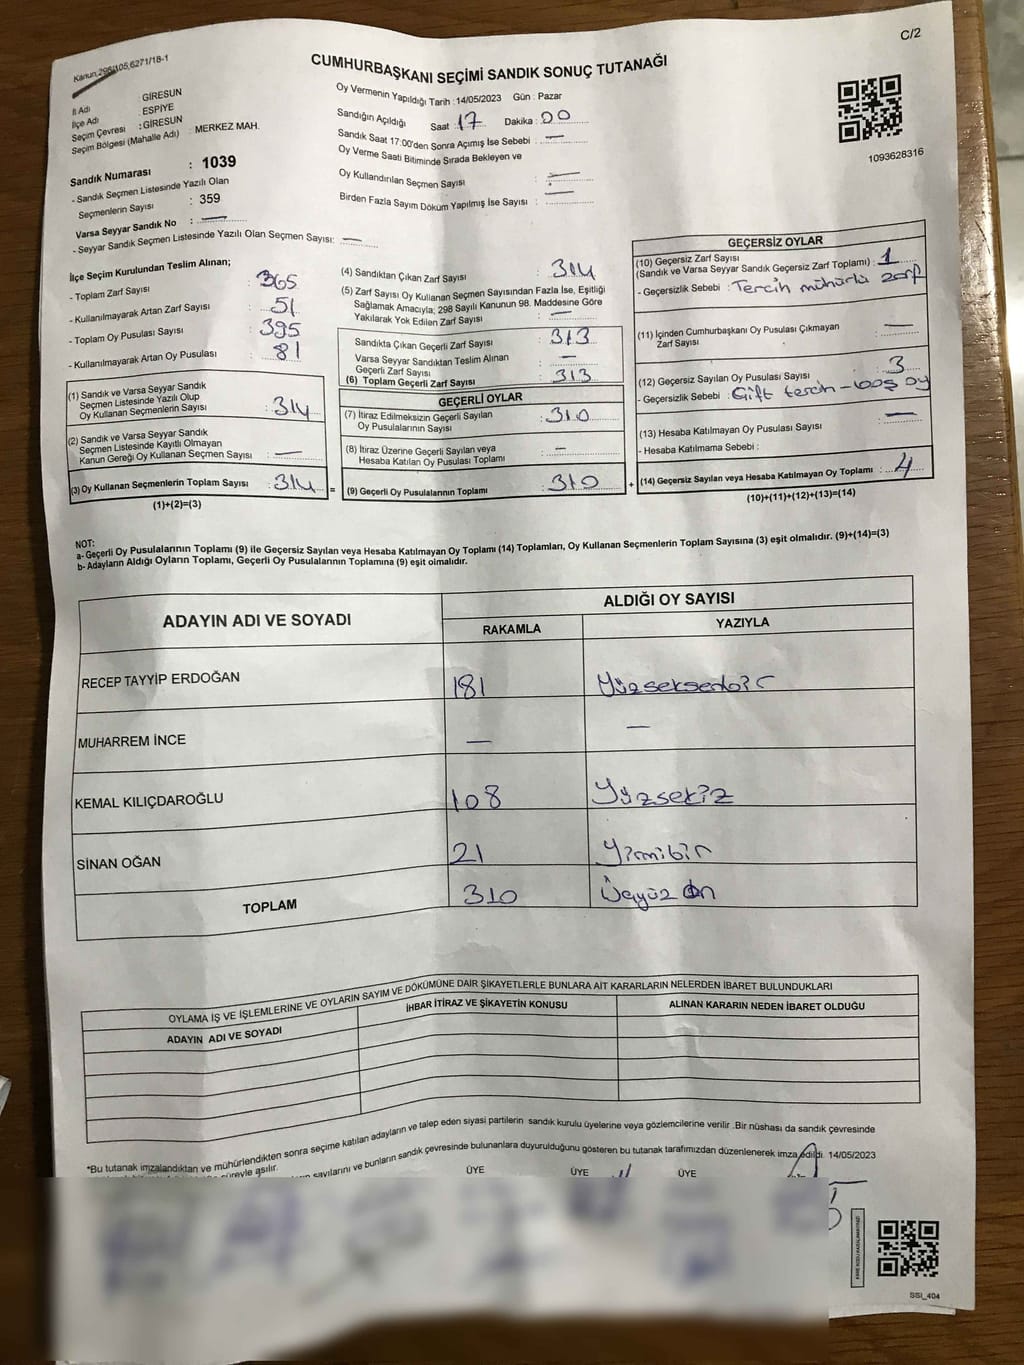 Kanun,298/105,6271/18-1
C/2
CUMHURBAŞKANI SEÇİMİ SANDIK SONUÇ TUTANAĞI
İl Adı : GİRESUN
İlçe Adı : ESPİYE
Seçim Çevresi : GİRESUN
Seçim Bölgesi (Mahalle Adı) : MERKEZ MAH.
Sandık Numarası : 1039
- Sandık Seçmen Listesinde Yazılı Olan
Seçmenlerin Sayısı : 359
Varsa Seyyar Sandık No : —
- Seyyar Sandık Seçmen Listesinde Yazılı Olan Seçmen Sayısı: —
Oy Vermenin Yapıldığı Tarih : 14/05/2023 Gün : Pazar
Sandığın Açıldığı Saat : 17 Dakika : 00
Sandık Saat 17:00'den Sonra Açımış İse Sebebi : —
Oy Verme Saati Bitiminde Sırada Bekleyen ve
Oy Kullandırılan Seçmen Sayısı : —
Birden Fazla Sayım Döküm Yapılmış İse Sayısı : —
1093628316
İlçe Seçim Kurulundan Teslim Alınan;
- Toplam Zarf Sayısı : 365
- Kullanılmayarak Artan Zarf Sayısı : 51
- Toplam Oy Pusulası Sayısı : 395
- Kullanılmayarak Artan Oy Pusulası : 81
(1) Sandık ve Varsa Seyyar Sandık
Seçmen Listesinde Yazılı Olup
Oy Kullanan Seçmenlerin Sayısı : 314
(2) Sandık ve Varsa Seyyar Sandık
Seçmen Listesinde Kayıtlı Olmayan
Kanun Gereği Oy Kullanan Seçmen Sayısı : —
(3) Oy Kullanan Seçmenlerin Toplam Sayısı : 314 =
(1)+(2)=(3)
(4) Sandıktan Çıkan Zarf Sayısı : 314
(5) Zarf Sayısı Oy Kullanan Seçmen Sayısından Fazla İse, Eşitliği
Sağlamak Amacıyla; 298 Sayılı Kanunun 98. Maddesine Göre
Yakılarak Yok Edilen Zarf Sayısı : —
Sandıkta Çıkan Geçerli Zarf Sayısı : 313
Varsa Seyyar Sandıktan Teslim Alınan
Geçerli Zarf Sayısı : —
(6) Toplam Geçerli Zarf Sayısı : 313
GEÇERLİ OYLAR
(7) İtiraz Edilmeksizin Geçerli Sayılan
Oy Pusulalarının Sayısı : 310
(8) İtiraz Üzerine Geçerli Sayılan veya
Hesaba Katılan Oy Pusulası Toplamı : —
(9) Geçerli Oy Pusulalarının Toplamı : 310 +
GEÇERSİZ OYLAR
(10) Geçersiz Zarf Sayısı
(Sandık ve Varsa Seyyar Sandık Geçersiz Zarf Toplamı) : 1
- Geçersizlik Sebebi : Tercih mühürlü zarf
(11) İçinden Cumhurbaşkanı Oy Pusulası Çıkmayan
Zarf Sayısı : —
(12) Geçersiz Sayılan Oy Pusulası Sayısı : 3
- Geçersizlik Sebebi : Çift tercih - boş oy
(13) Hesaba Katılmayan Oy Pusulası Sayısı : —
- Hesaba Katılmama Sebebi :
(14) Geçersiz Sayılan veya Hesaba Katılmayan Oy Toplamı : 4
(10)+(11)+(12)+(13)=(14)
NOT:
a- Geçerli Oy Pusulalarının Toplamı (9) ile Geçersiz Sayılan veya Hesaba Katılmayan Oy Toplamı (14) Toplamları, Oy Kullanan Seçmenlerin Toplam Sayısına (3) eşit olmalıdır. (9)+(14)=(3)
b- Adayların Aldığı Oyların Toplamı, Geçerli Oy Pusulalarının Toplamına (9) eşit olmalıdır.
ADAYIN ADI VE SOYADI
ALDIĞI OY SAYISI
RAKAMLA YAZIYLA
RECEP TAYYİP ERDOĞAN 181 Yüzseksenbir
MUHARREM İNCE — —
KEMAL KILIÇDAROĞLU 108 Yüzsekiz
SİNAN OĞAN 21 Yirmibir
TOPLAM 310 Üçyüz On
OYLAMA İŞ VE İŞLEMLERİNE VE OYLARIN SAYIM VE DÖKÜMÜNE DAİR ŞİKAYETLERLE BUNLARA AİT KARARLARIN NELERDEN İBARET BULUNDUKLARI
ADAYIN ADI VE SOYADI İHBAR İTİRAZ VE ŞİKAYETİN KONUSU ALINAN KARARIN NEDEN İBARET OLDUĞU
*Bu tutanak imzalandıktan ve mühürlendikten sonra seçime katılan adayların ve talep eden siyasi partilerin sandık kurulu üyelerine veya gözlemcilerine verilir .Bir nüshası da sandık çevresinde
süreyle asılır.
sayılarını ve bunların sandık çevresinde bulunanlara duyurulduğunu gösteren bu tutanak tarafımızdan düzenlenerek imza edildi. 14/05/2023
ÜYE ÜYE ÜYE
SSI_404